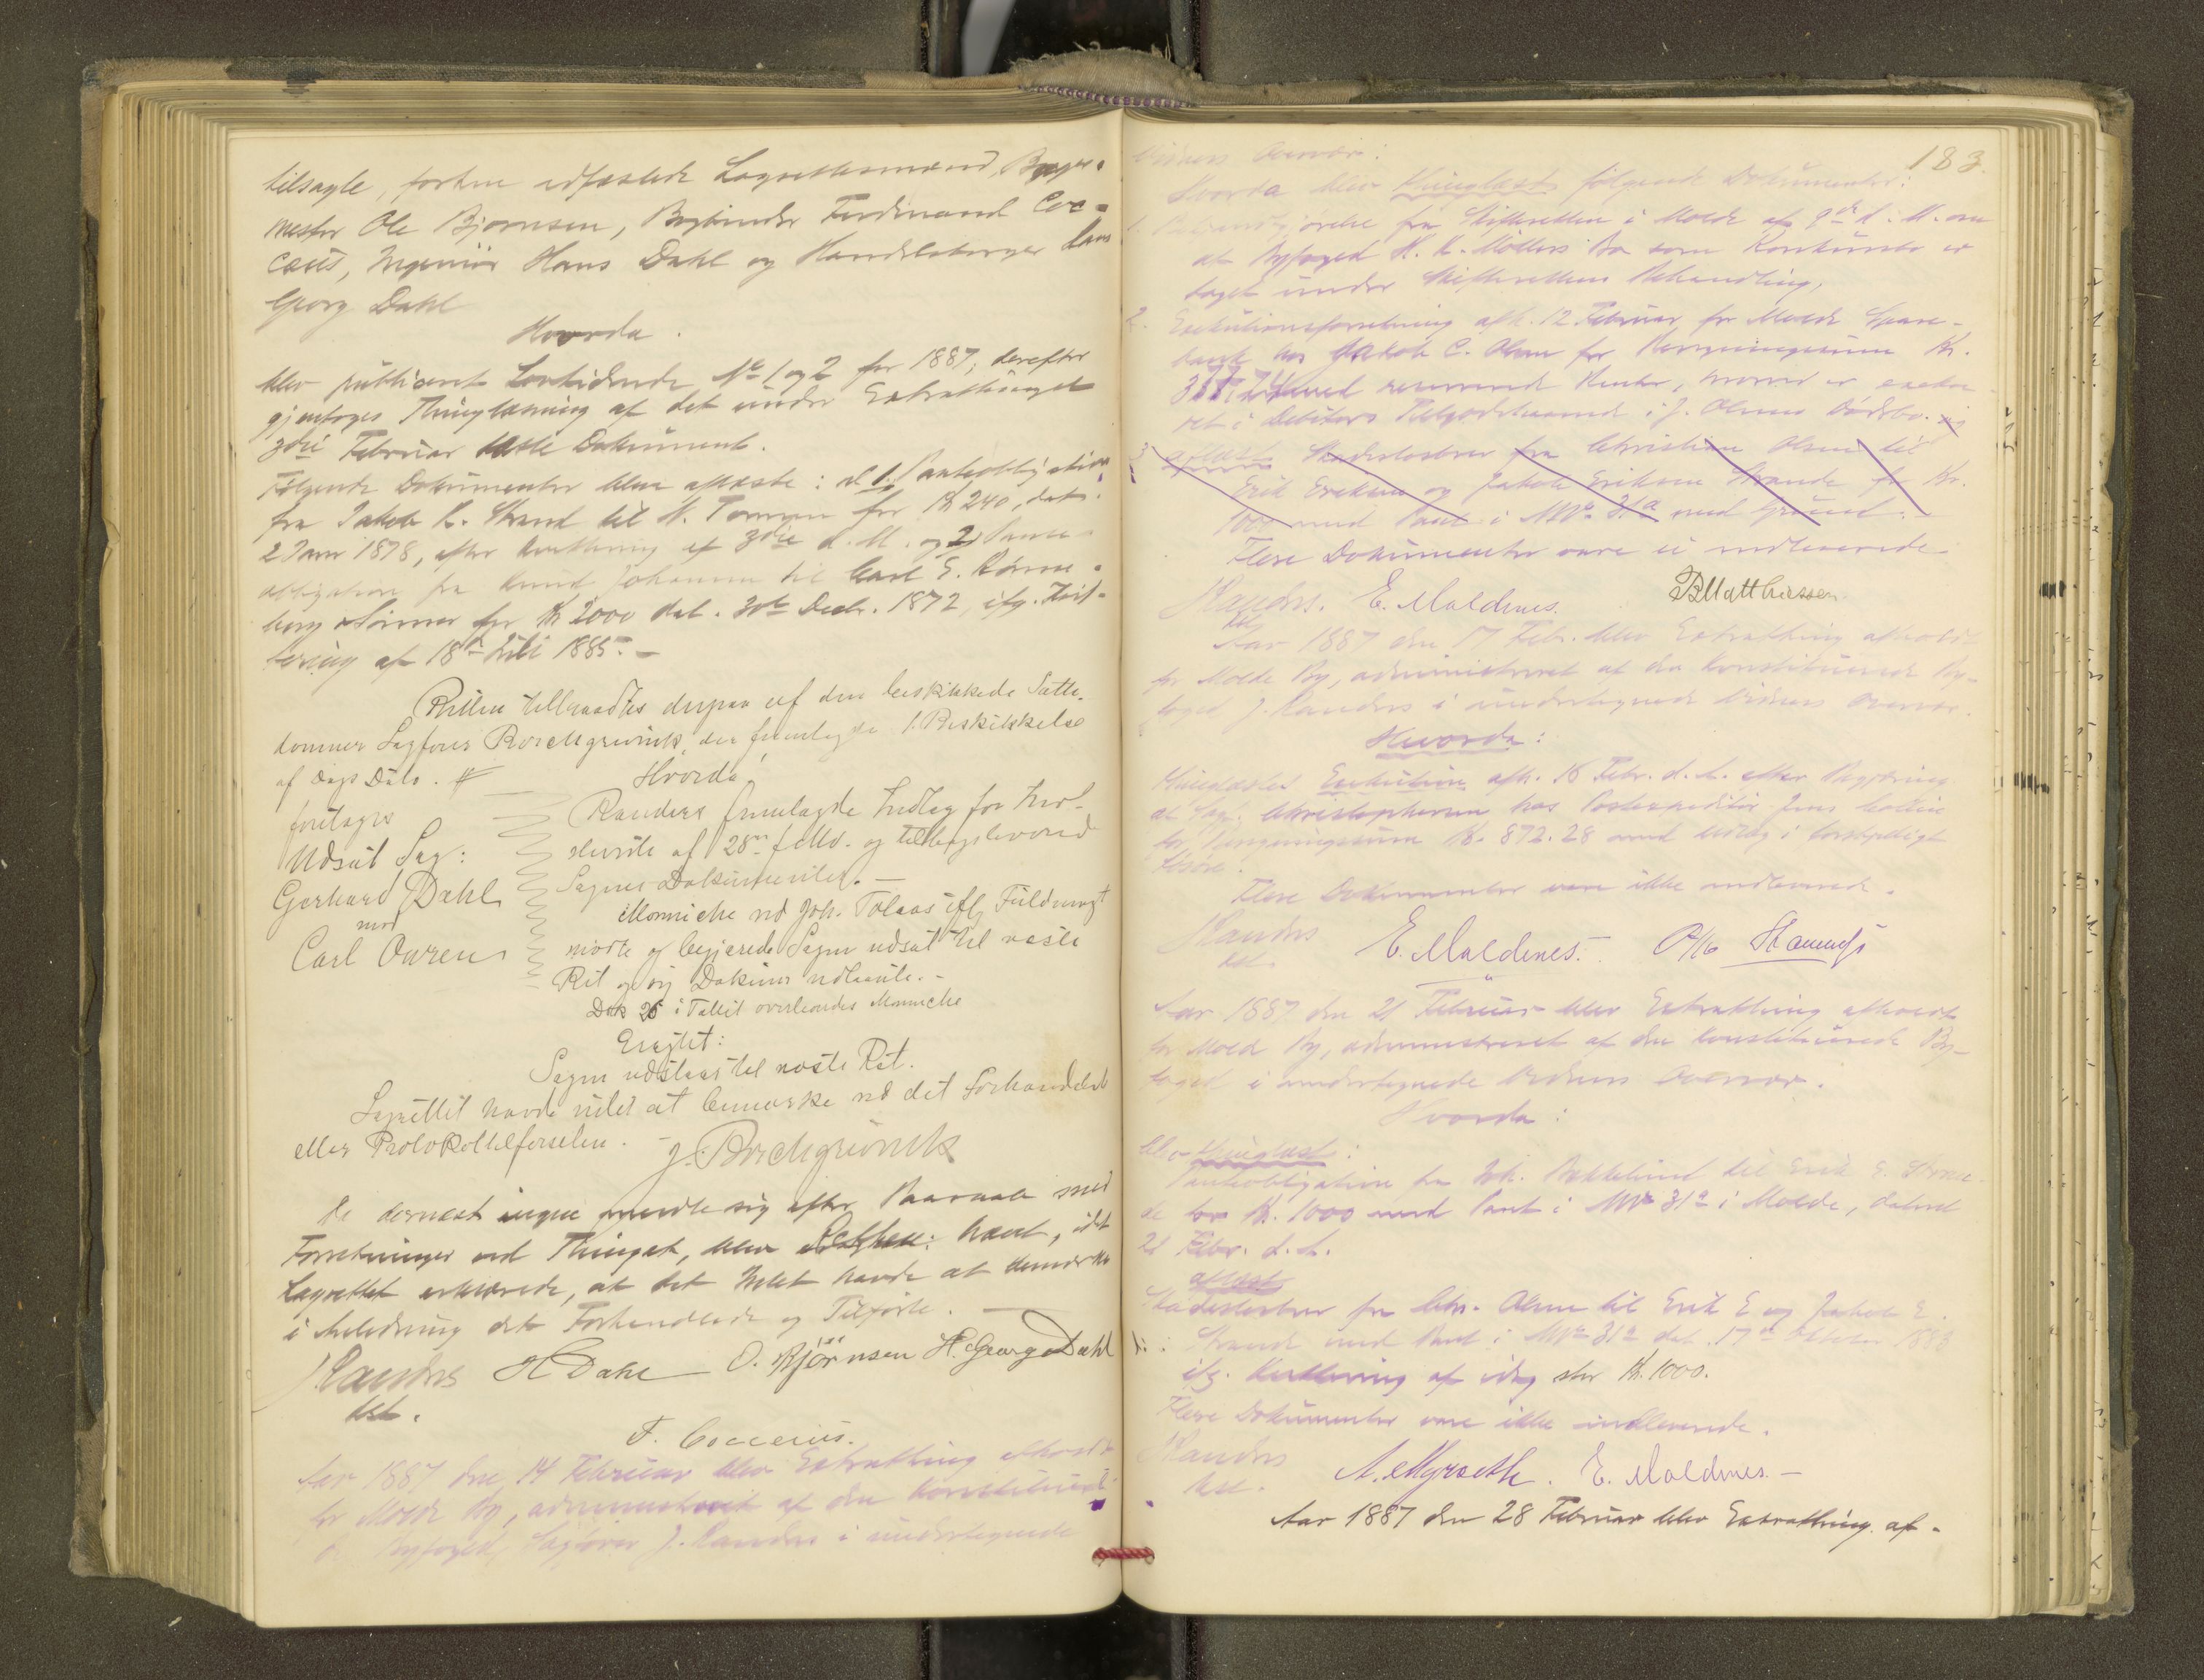 tilsagte, forhen edfæstede Lagrettesmænd, Bager-
mester Ole Bjørnsen, Bogbinder Ferdinand Coc-
ceiüs, Ingeniør Hans Dahl og Handelsborger Hans
Georg Dahl
Hvorda.
blev publiceret Lovtidende No 1 og 2 for 1887, derefter
gjentoges Thinglæsning af det under Extrathinget
3die Februar læste Dokument.
Følgende Dokumenter blev aflæste: 1. Panteobligation
fra Jakob K. Strand til N. Tommen for Kr 240, dat.
2 Janr 1878, efter Kvittering af 3die d. M. og 2) Pante-
obligation fra Knud Johannsen til Carl E. Rønne-
berg & Sønner for Kr 2000 dat. 30te Decbr. 1872, ifg. Kvit-
tering af 18de Juli 1885. —
Retten beklædtes derpaa af den beskikkede Sætte-
dommer Sagfører Borchgrevink, der fremlagde 1. Beskikkelse
af Dags Dato.
Hvorda!
foretages
Udsat Sag:
Gerhard Dahl
mod
Carl Owren
Randers fremlagde Indlæg for Hol-
af 28de f. Md. og tilbageleverede
Sagens Dokumenter. —
Monniche ved Joh. Tolaas ifl. Fuldmagt
mødte og begjærede Sagen udsat til næste
Ret og Dokum. udlaante. -
Dok 25 i Tallet overleveredes Monniche
Eragtet:
Sagen udstaar til næste Ret.
Lagrettet havde intet at bemærke ved det Forhandlede
eller Protokoltilførselen. - J. Borchgrevink
Da dernæst ingen meldte sig efter Paaraab med
Forretninger ved Thinget, blev Retten hævet, idet
Lagrettet erklærede, at det Intet havde at bemærke
i Anledning det Forhandlede og Tilførte. —
J. Randers H Dahl O. Bjørnsen H. Georg Dahl
kst.
F. Cocceiüs.
Aar 1887 den 14 Februar blev Extrathing afholdt
for Molde By, administreret af den konstituere-
de Byfoged, Sagfører J. Randers i undertegnede
183.
Vidners Overvær:
Hvorda blev thinglæst følgende Dokumenter:
1. Bekjendtgjørelse fra Skifteretten i Molde af 9de d. M. om
at Byfoged H. K. Møllers Bo som Konkursbo er
taget under Skifterettens Behandling,
2. Exekutionsforretning afh. 12 Februar for Molde Spare-
bank hos Jakob C. Olsen for Pengesum Kr.
317.74 med Renter, hvorved er
ret i Debitors Tilgodehavende i J. Olsens Dødsbo.
3. aflæst Skadesløsbrev fra Christian Olsen til
Erik Eriksen og Jakob Eriksen Strande for Kr.
1000 med Pant i MNo 31a med Grund.
Flere Dokumenter vare ei indleverede.
J Randers. E. Maldenes. B Matthiessen
kst
Aar 1887 den 17 Febr. blev Extrathing afholdt
for Molde By, administreret af den konstituerede By-
foged J. Randers i undertegnede Vidners Overvær.
Hvorda:
thinglæstes Exekution afh. 16 Febr. d. A. efter Begjæring
af Sagf. Christophersen hos Postexpeditør Jens
for Pengesum Kr. 872.28 med Udlæg i forskjelligt
Løsøre.
Flere Dokumenter vare ikke indleverede.
J Randers E. Maldenes.
kst.
Aar 1887 den 21 Februar blev Extrathing afholdt
for Molde By, administreret af den konstituerede By-
foged i undertegnede Vidners Overvær.
Hvorda:
blev thinglæst:
Panteobligation fra Joh. til Erik E. Stran-
de for Kr. 1000 med Pant i MNo 31a i Molde, dateret
21 Febr. d. A.
aflæst
Skadesløsbrev fra Chr. Olsen til Erik E og Jakob E.
Strande med Pant i MNo 31a dat. 17de Oktober 1883
ifg. Kvittering af idag stor Kr. 1000.
Flere Dokumenter vare ikke indleverede.
J Randers
kst. A. Myrseth. E. Maldenes. —
Aar 1887 den 28 Februar blev Extrathing af-